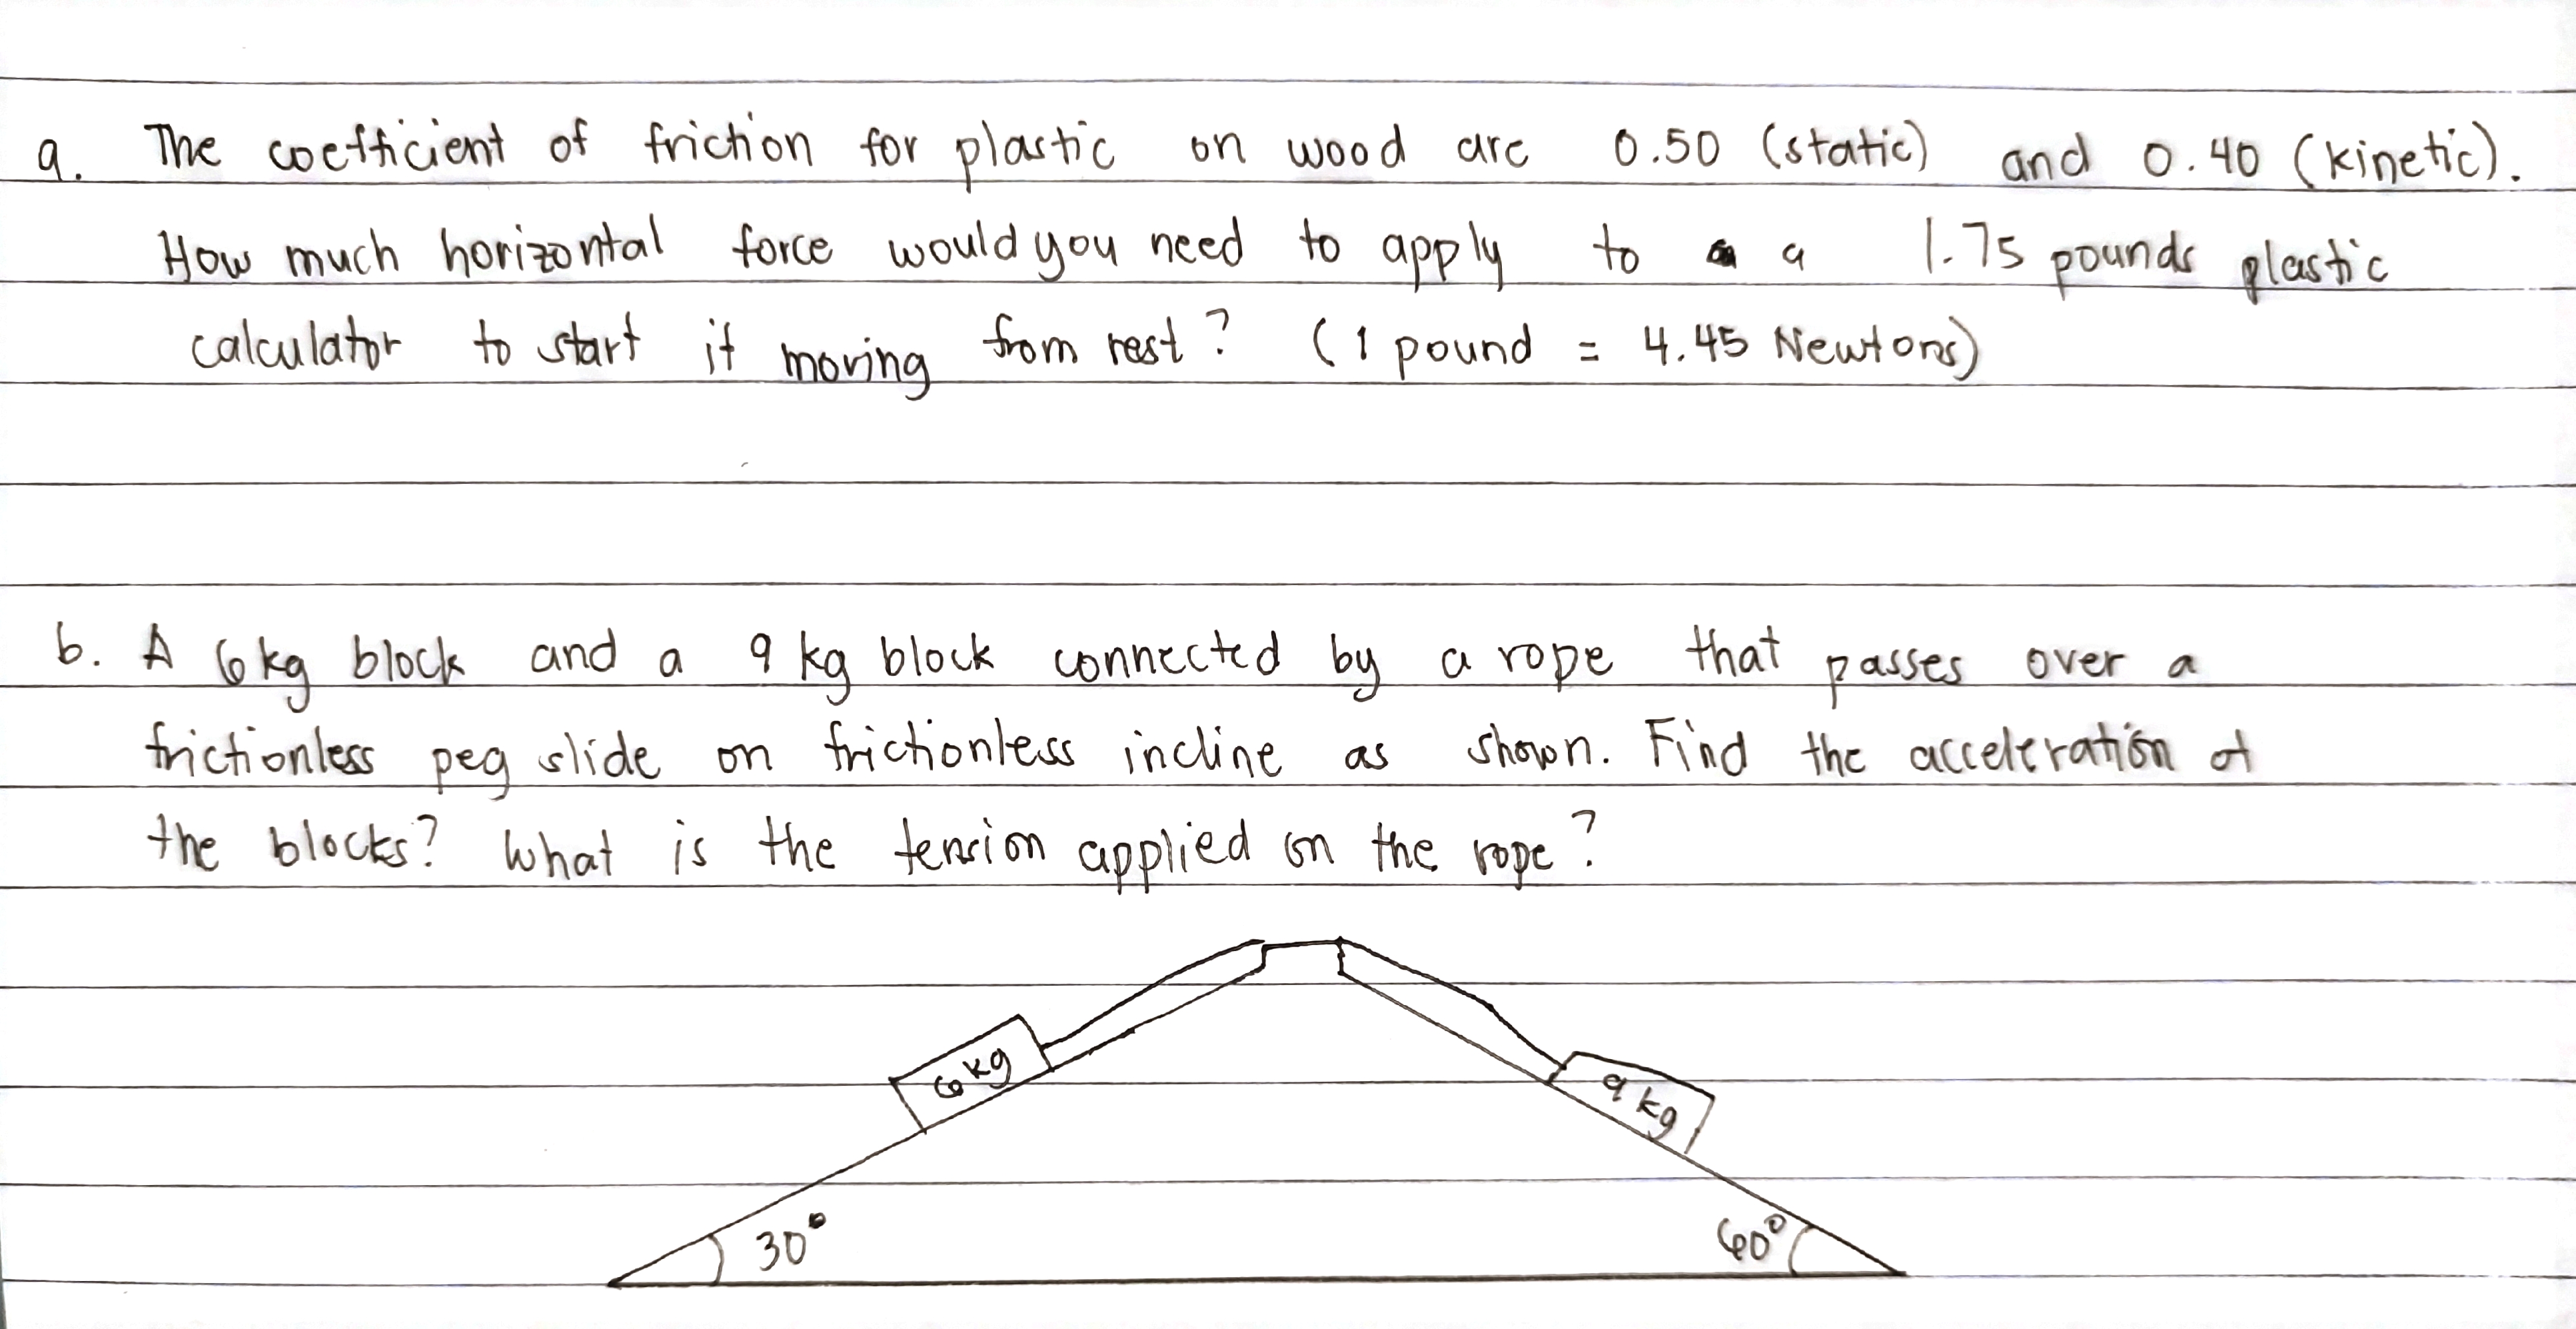 a. The coefficient of friction for plastic on wood are 0.50 (static) and 0.40 (kinetic).
How much horizontal force would you need to apply to a 1.75 pounds plastic
calculator to start it moving from rest? (1 pound = 4.45 Newtons)
b. A 6kg block and a 9 kg block connected by a rope that passes over a
frictionless peg slide on frictionless incline as shown. Find the acceleration of
the blocks? What is the tension applied on the rope?
6 kg
9 kg
30°
60°